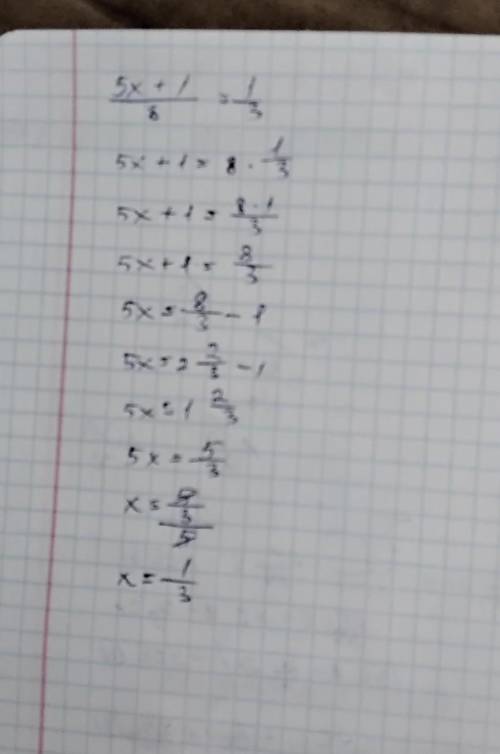 (5x + 1)/8 = 1/3
5x + 1 = 8 · 1/3
5x + 1 = (8 · 1)/3
5x + 1 = 8/3
5x = 8/3 - 1
5x = 2 2/3 - 1
5x = 1 2/3
5x = 5/3
x = (5/3)/5
x = 1/3